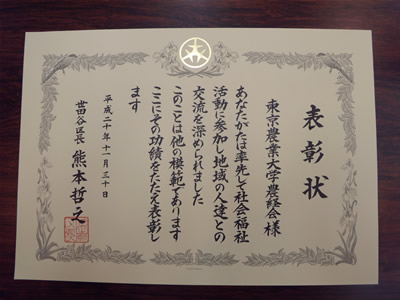 表彰状
東京農業大学農経会様
あなたがたは率先して社会福祉
活動に参加し地域の人達との
交流を深められました
このことは他の模範であります
ここにその功績をたたえ表彰し
ます
平成二十年十一月三十日
世田谷区長 熊本哲之